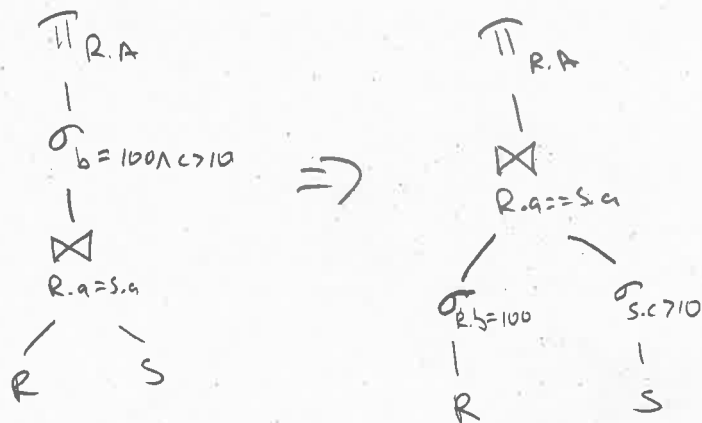 π R.A
σ b=100∧c>10
⋈
R.a=s.a
R S
⇒
π R.A
⋈
R.a==s.a
σ R.b=100 σ s.c>10
R S